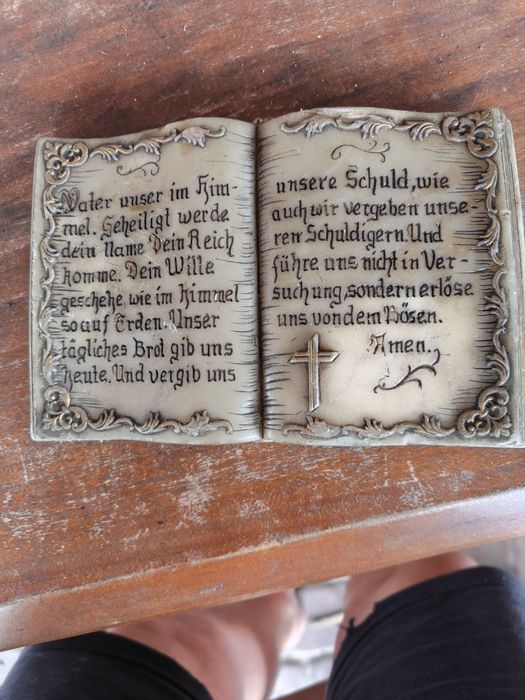 Vater unser im Him-
mel. Geheiligt werde
dein Name. Dein Reich
komme. Dein Wille
geschehe, wie im Himmel
so auf Erden. Unser
tägliches Brot gib uns
heute. Und vergib uns
unsere Schuld, wie
auch wir vergeben unse-
ren Schuldigern. Und
führe uns nicht in Ver-
suchung, sondern erlöse
uns von dem Bösen.
Amen.